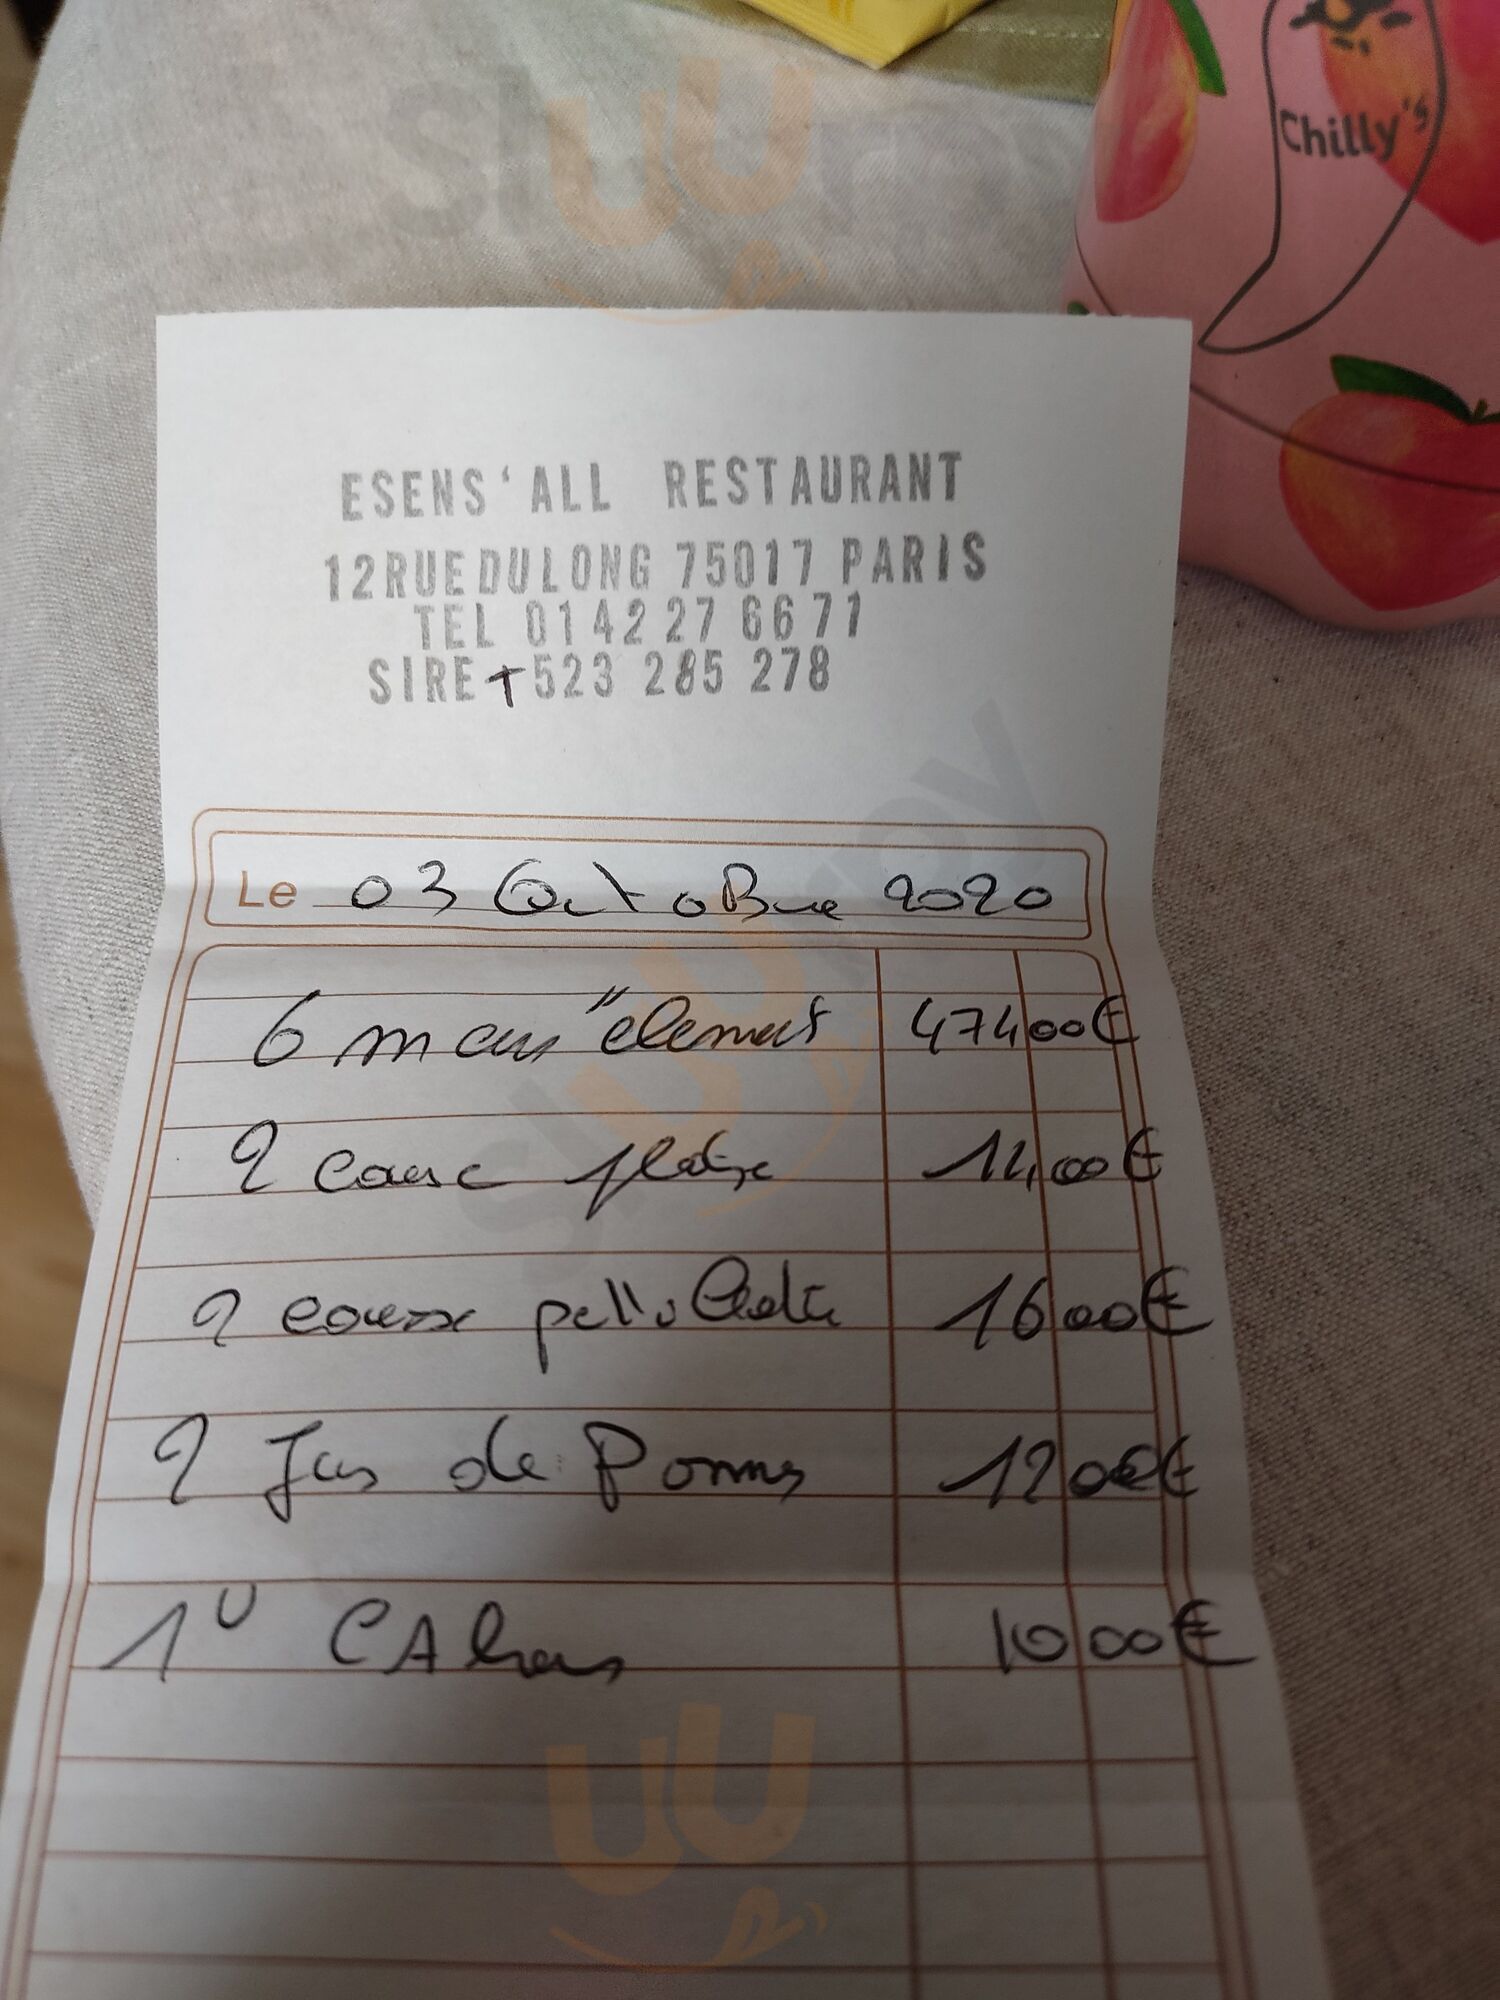 Chilly's
ESENS'ALL RESTAURANT
12 RUE DU LONG 75017 PARIS
TEL 01 42 27 66 71
SIRET 523 285 278
Le 03 OctoBre 2020
6 menus "element 474,00€
2 eause plate 14,00€
2 eause 16,00€
2 Jus de Pommes 12,00€
1 CAhors 10,00€
slurrpy